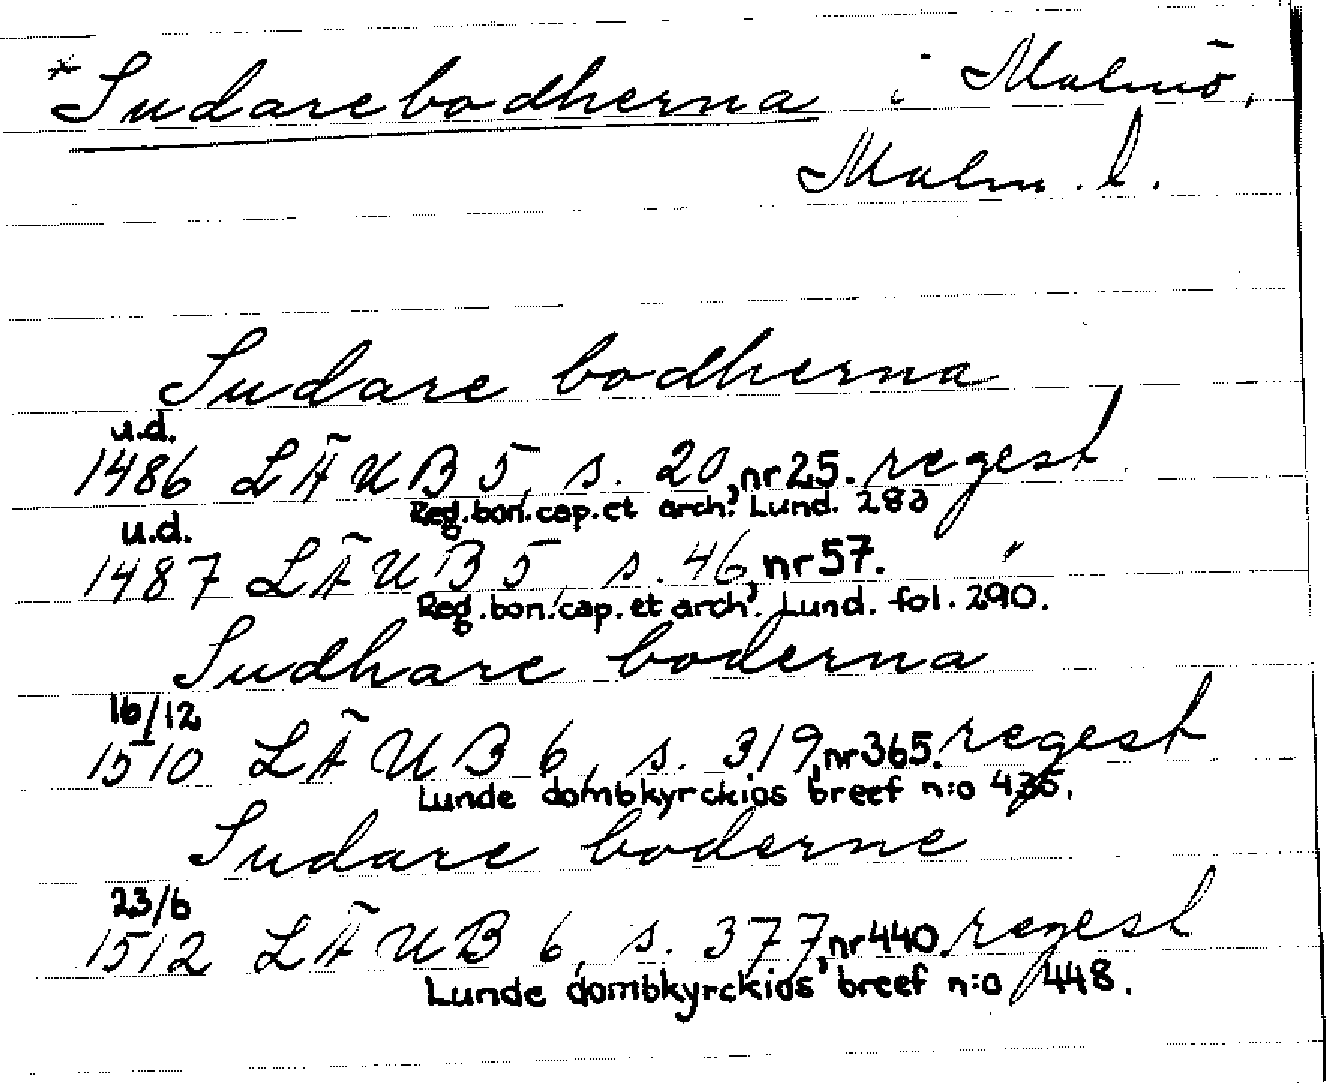 *Sudarebodherna i Malmö,
Malm. l.
Sudare bodherna
u.d.
1486 LÄUB 5, s. 20, nr 25. regest
Reg. bon. cap. et arch. Lund. 283
u.d.
1487 LÄUB 5, s. 46, nr 57. "
Reg. bon. cap. et arch. Lund. fol. 290.
Sudhare boderna
16/12
1510 LÄUB 6, s. 319, nr 365. regest
Lunde dombkyrckios breef n:o 435.
Sudare boderne
23/6
1512 LÄUB 6, s. 377, nr 440. regest
Lunde dombkyrckios breef n:o 448.